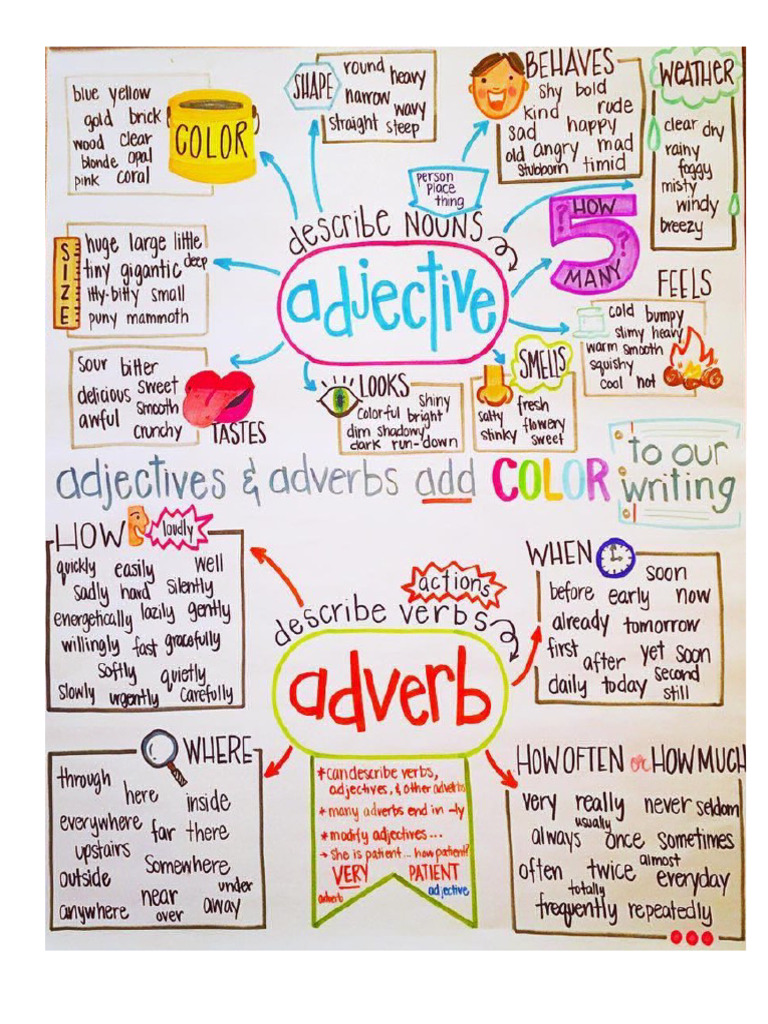 blue yellow
gold brick
wood clear
blonde opal
pink coral
COLOR
SHAPE
round heavy
narrow wavy
straight steep
BEHAVES
shy bold
kind rude
sad happy
old angry mad
stubborn timid
WEATHER
clear dry
rainy
foggy
misty
windy
breezy
person
place
thing
describe NOUNS
adjective
? HOW
5 ?
MANY
SIZE
huge large little
tiny gigantic deep
itty-bitty small
puny mammoth
FEELS
cold bumpy
slimy heavy
warm smooth
squishy
cool hot
sour bitter
delicious sweet
awful smooth
crunchy
TASTES
LOOKS
shiny
colorful bright
dim shadowy
dark run-down
SMELLS
salty fresh
stinky flowery
sweet
adjectives & adverbs add COLOR to our
writing
HOW loudly
quickly easily well
sadly hard silently
energetically lazily gently
willingly fast gracefully
softly quietly
slowly urgently carefully
actions
describe verbs
adverb
WHEN
soon
before early now
already tomorrow
first after yet soon
daily today second
still
WHERE
through here inside
everywhere far there
upstairs
outside somewhere
near under
anywhere over away
*can describe verbs,
adjectives, & other adverbs
*many adverbs end in -ly
*modify adjectives...
→ she is patient... how patient?
VERY PATIENT
adverb adjective
HOW OFTEN or HOW MUCH
very really never seldom
usually
always once sometimes
almost
often twice everyday
totally
frequently repeatedly